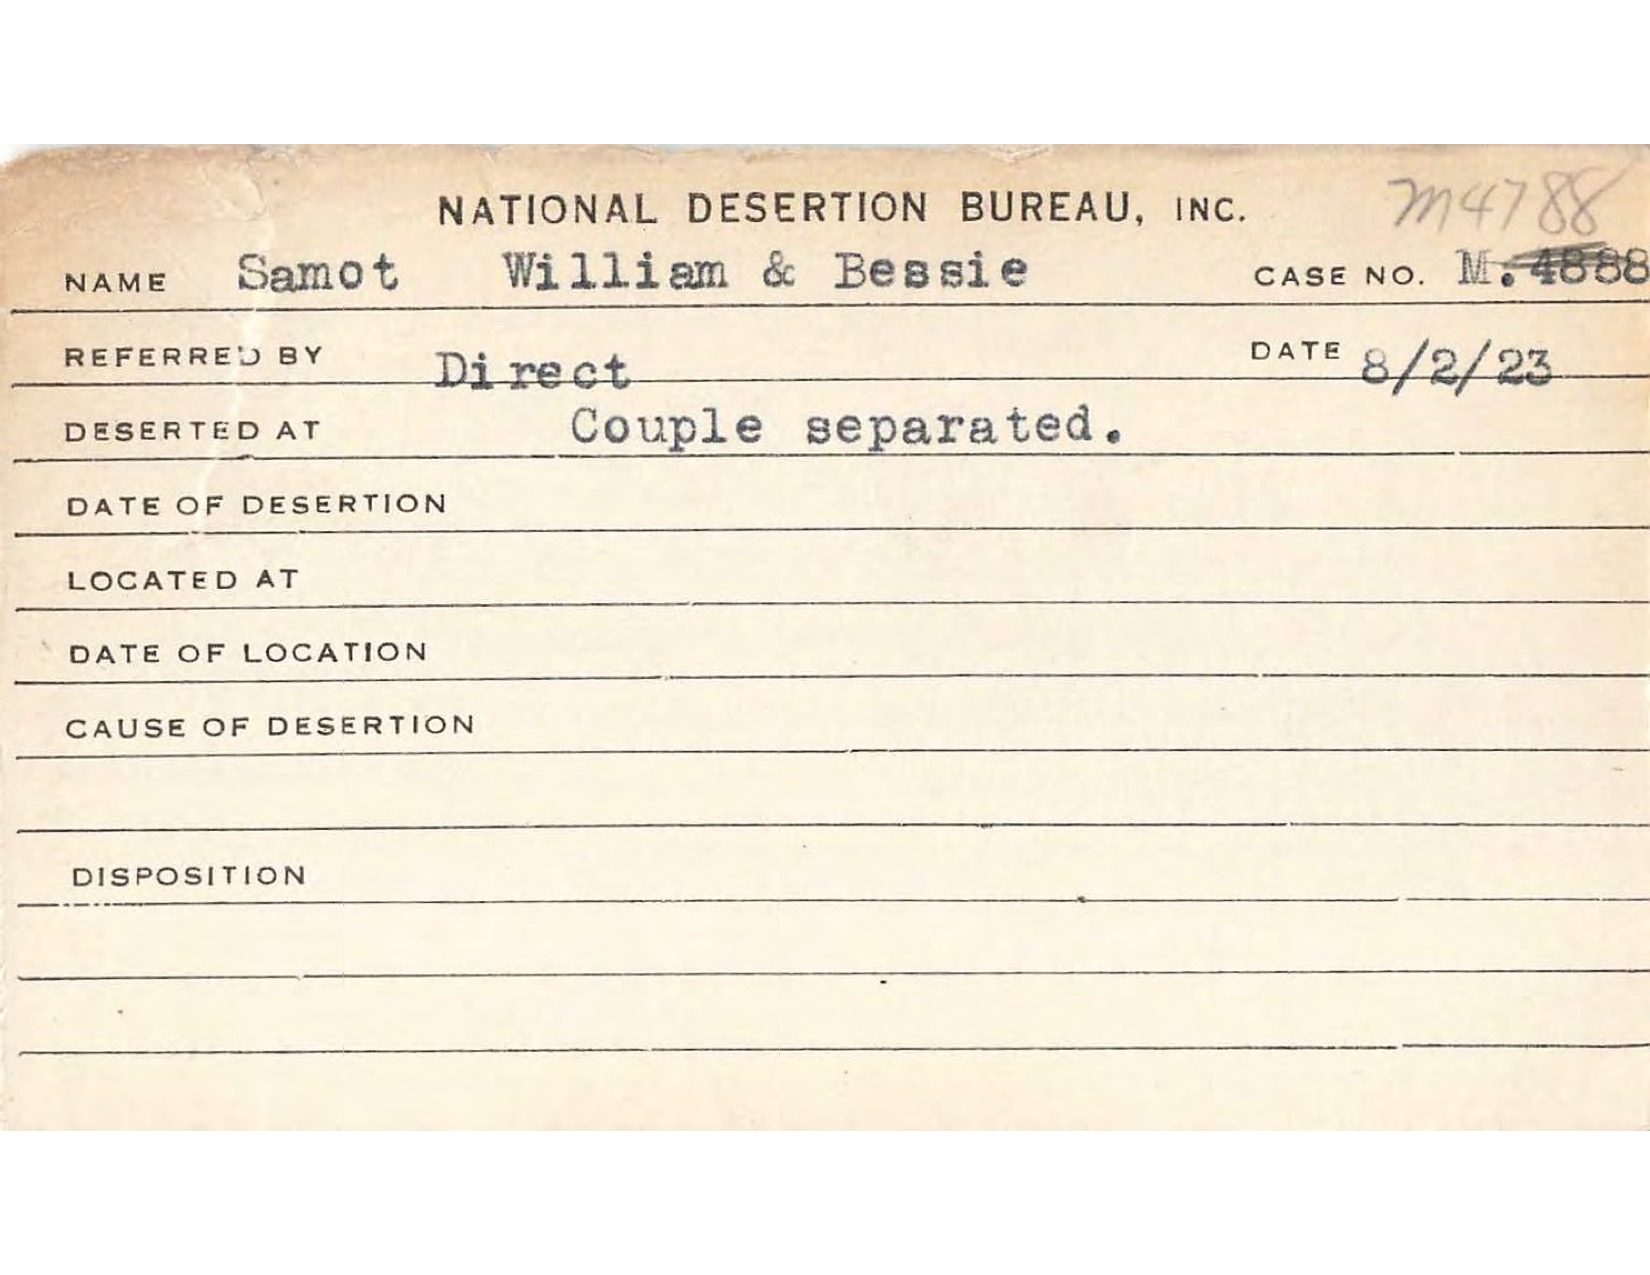 NATIONAL DESERTION BUREAU, INC. M4788
NAME Samot William & Bessie CASE NO. M.4888
REFERRED BY Direct DATE 8/2/23
DESERTED AT Couple separated.
DATE OF DESERTION
LOCATED AT
DATE OF LOCATION
CAUSE OF DESERTION
DISPOSITION